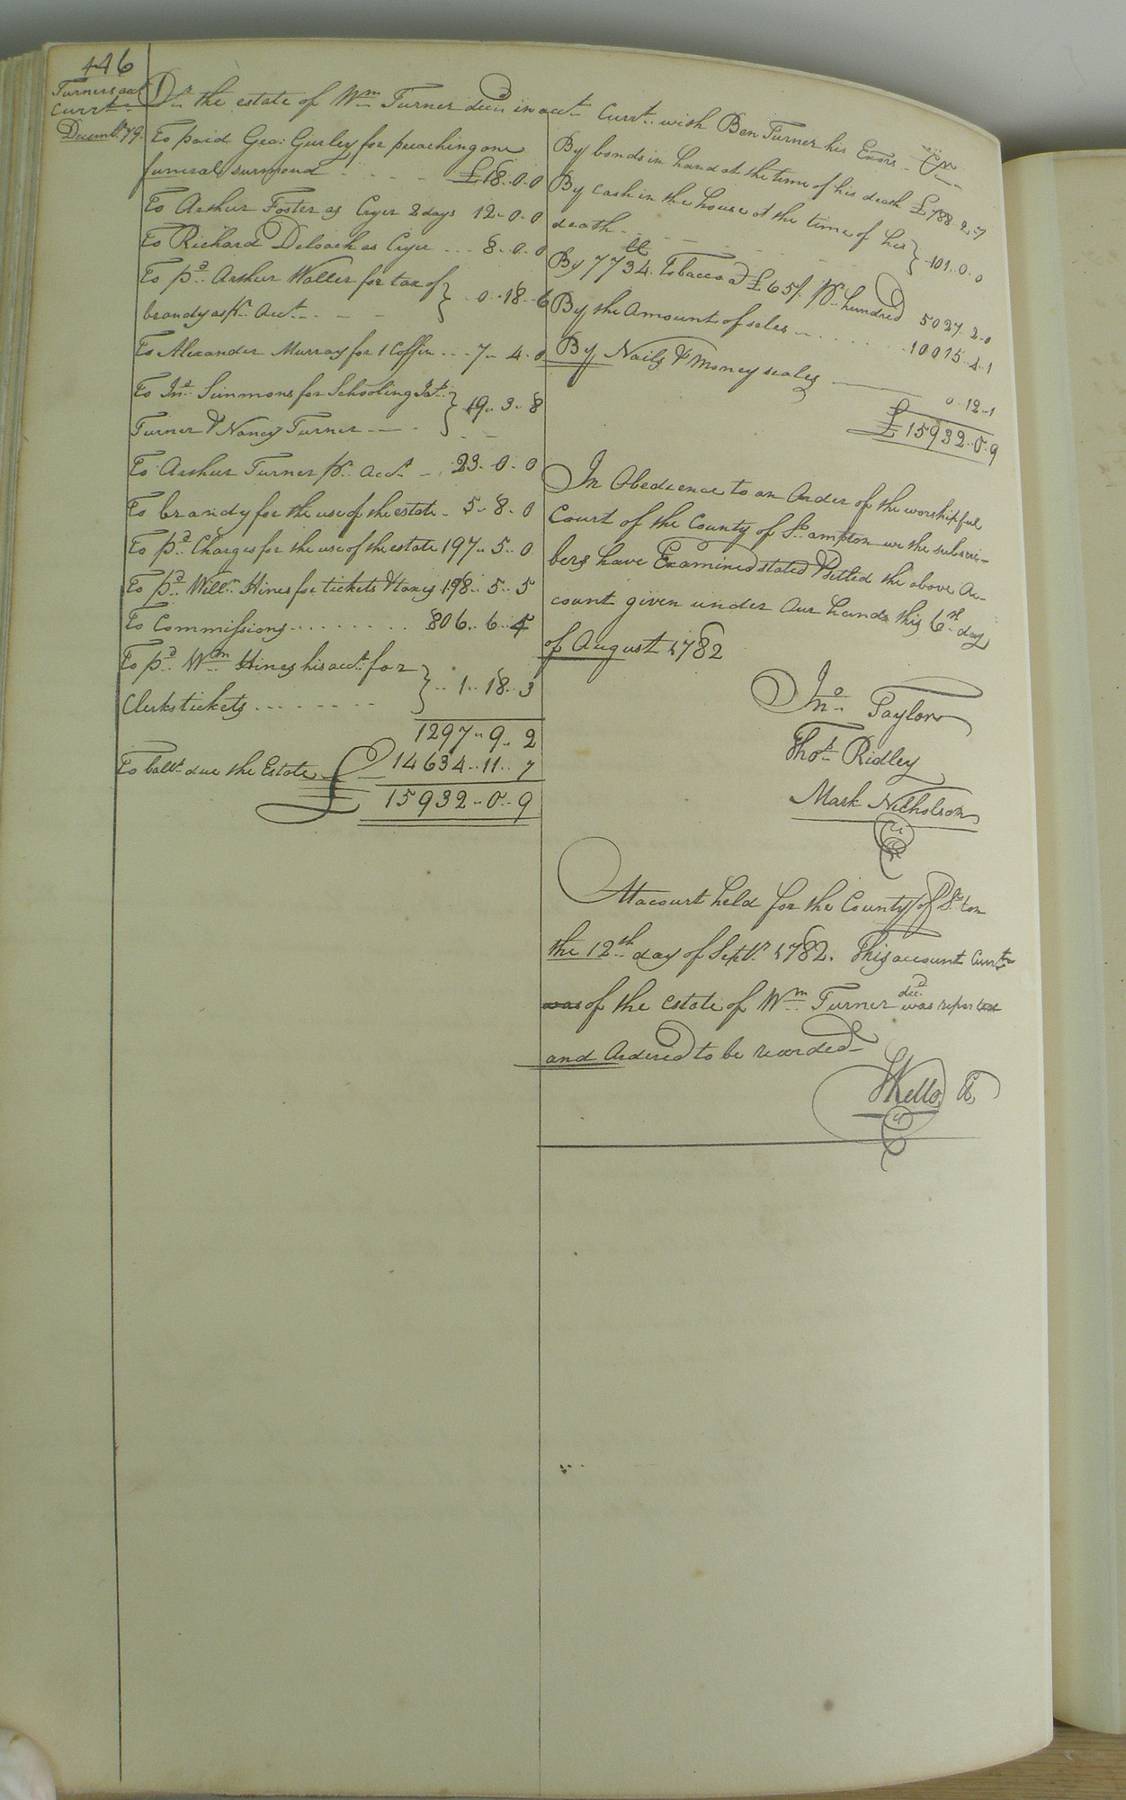 446
Turners acct
Currt
Decemb.r 79.
Dr. the estate of Wm Turner decd in acct Currt with Ben Turner his Exors. Cr.
To paid Geo: Gurley for preaching one
funeral surmond £18..0..0
To Arthur Foster as Cryer 2 days 12..0..0
To Richard Deloach as Cryer ... 8..0..0
To pd. Arthur Waller for tax of
brandy as pr. Acct. 0..18..6
To Alexander Murray for 1 Coffin ... 7..4..0
To Jno. Simmons for Schooling Jat.
Turner & Nancy Turner 19..3..8
To Arthur Turner pr. Acct. 23..0..0
To brandy for the use of the estate 5..8..0
To pd. Charges for the use of the estate 197..5..0
To pd. Willm Hines for tickets & taxes 198..5..5
To Commissions ........ 806..6..4
To pd. Wm Hines his acct. for
Clerks tickets ....... 1..18..3
1297..9..2
To ballc. due the Estate 14634..11..7
£ 15932..0..9
By bonds in hand at the time of his death £788..2..7
By cash in the house at the time of his
death 101..0..0
By 7734 lb Tobacco @ £65/. pr. hundred 5027..2..0
By the Amount of sales 10015..4..1
By Nails & money scales 0..12..1
£15932..0..9
In Obedience to an Order of the worshipful
Court of the County of So.ampton we the subscri-
bers have Examined stated & settled the above Ac-
count given under Our hands this 6th day
of August 1782
Jno. Taylor
Thos. Ridley
Mark Nicholson
At a court held for the County of So.ton
the 12th day of Septr. 1782. This account Currt.
was of the estate of Wm Turner decd. was reported
and Ordered to be recorded
S Kello Ct.